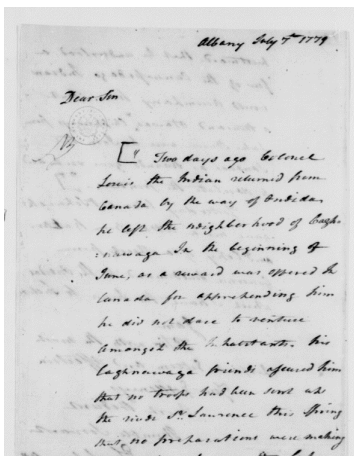 Albany July 7th 1779
Dear Sir
[ Two days ago Colonel
Louis the Indian returned from
Canada by the way of Onëida
he left the neighborhood of Cagh=
=nawaga In the beginning of
June, as a reward was offered In
Canada for apprehending him
he did not dare to venture
amongst the Inhabitants. his
Caghnawaga friends assured him
that no troops had been sent up
the river St. Lawrence this Spring
that no preparations were making